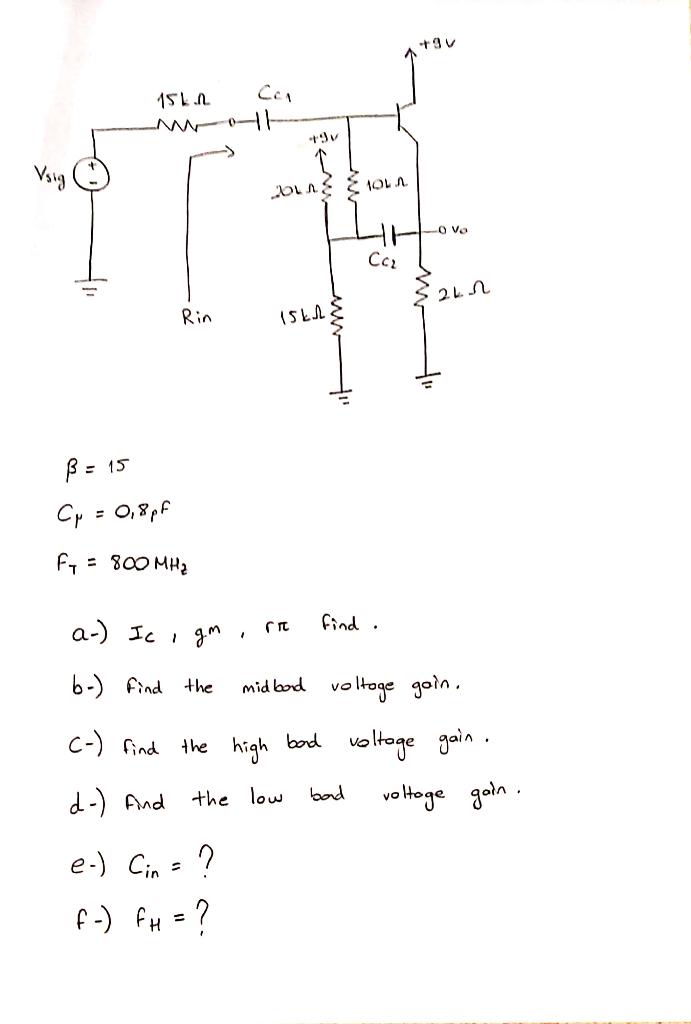 +9v
15kΩ Cc1
+9v
Vsig
20kΩ 10kΩ
Vo
Cc2
2kΩ
Rin 15kΩ
β = 15
Cμ = 0,8pf
fT = 800 MHz
a-) Ic , gm , rπ find .
b-) find the midband voltage gain.
c-) find the high band voltage gain .
d-) find the low band voltage gain .
e-) Cin = ?
f-) fH = ?